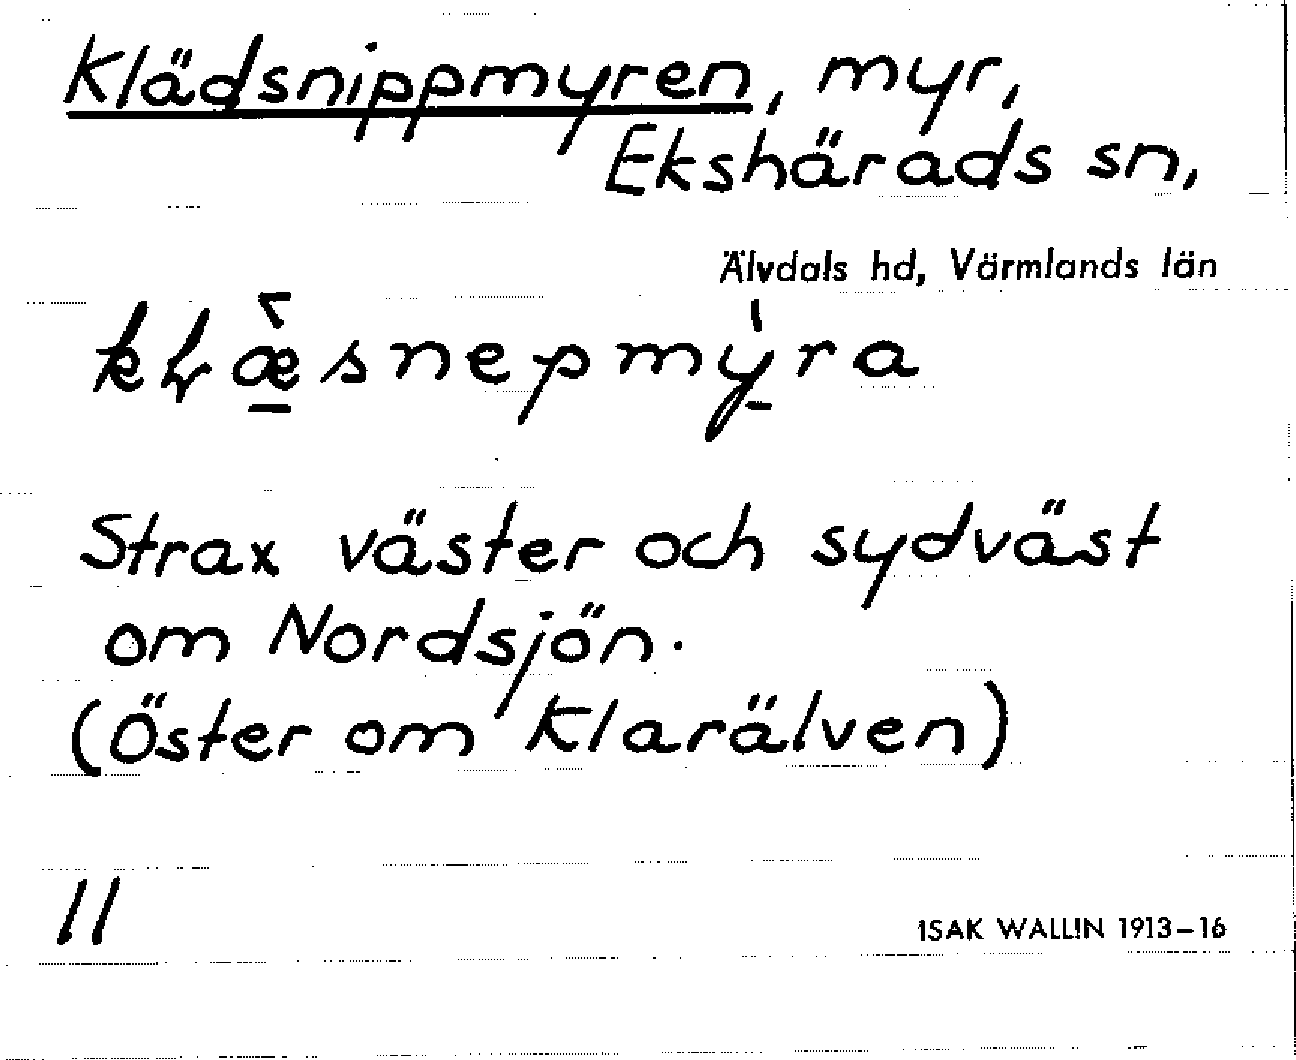 Klädsnippmyren, myr,
Ekshärads sn,
Älvdals hd, Värmlands län
Strax väster och sydväst
om Nordsjön.
(Öster om Klarälven)
11
ISAK WALLIN 1913-16